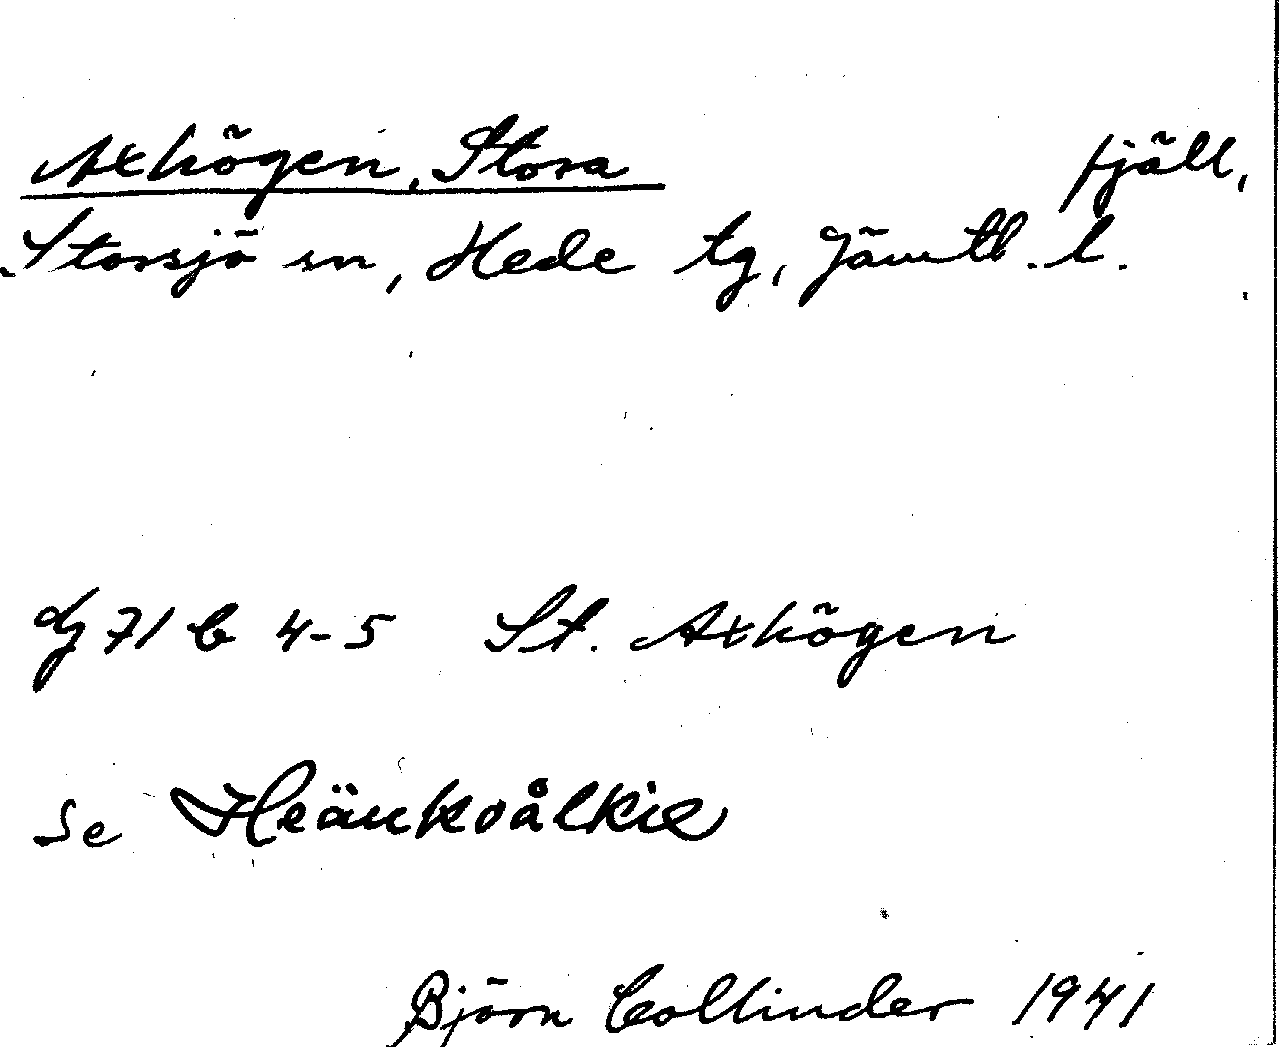 Axhögen, Stora fjäll,
Storsjö sn, Hede tg, Jämtl. l.
dg 71 b 4-5 St. Axhögen
se Heänkoålkie
Björn Collinder 1941